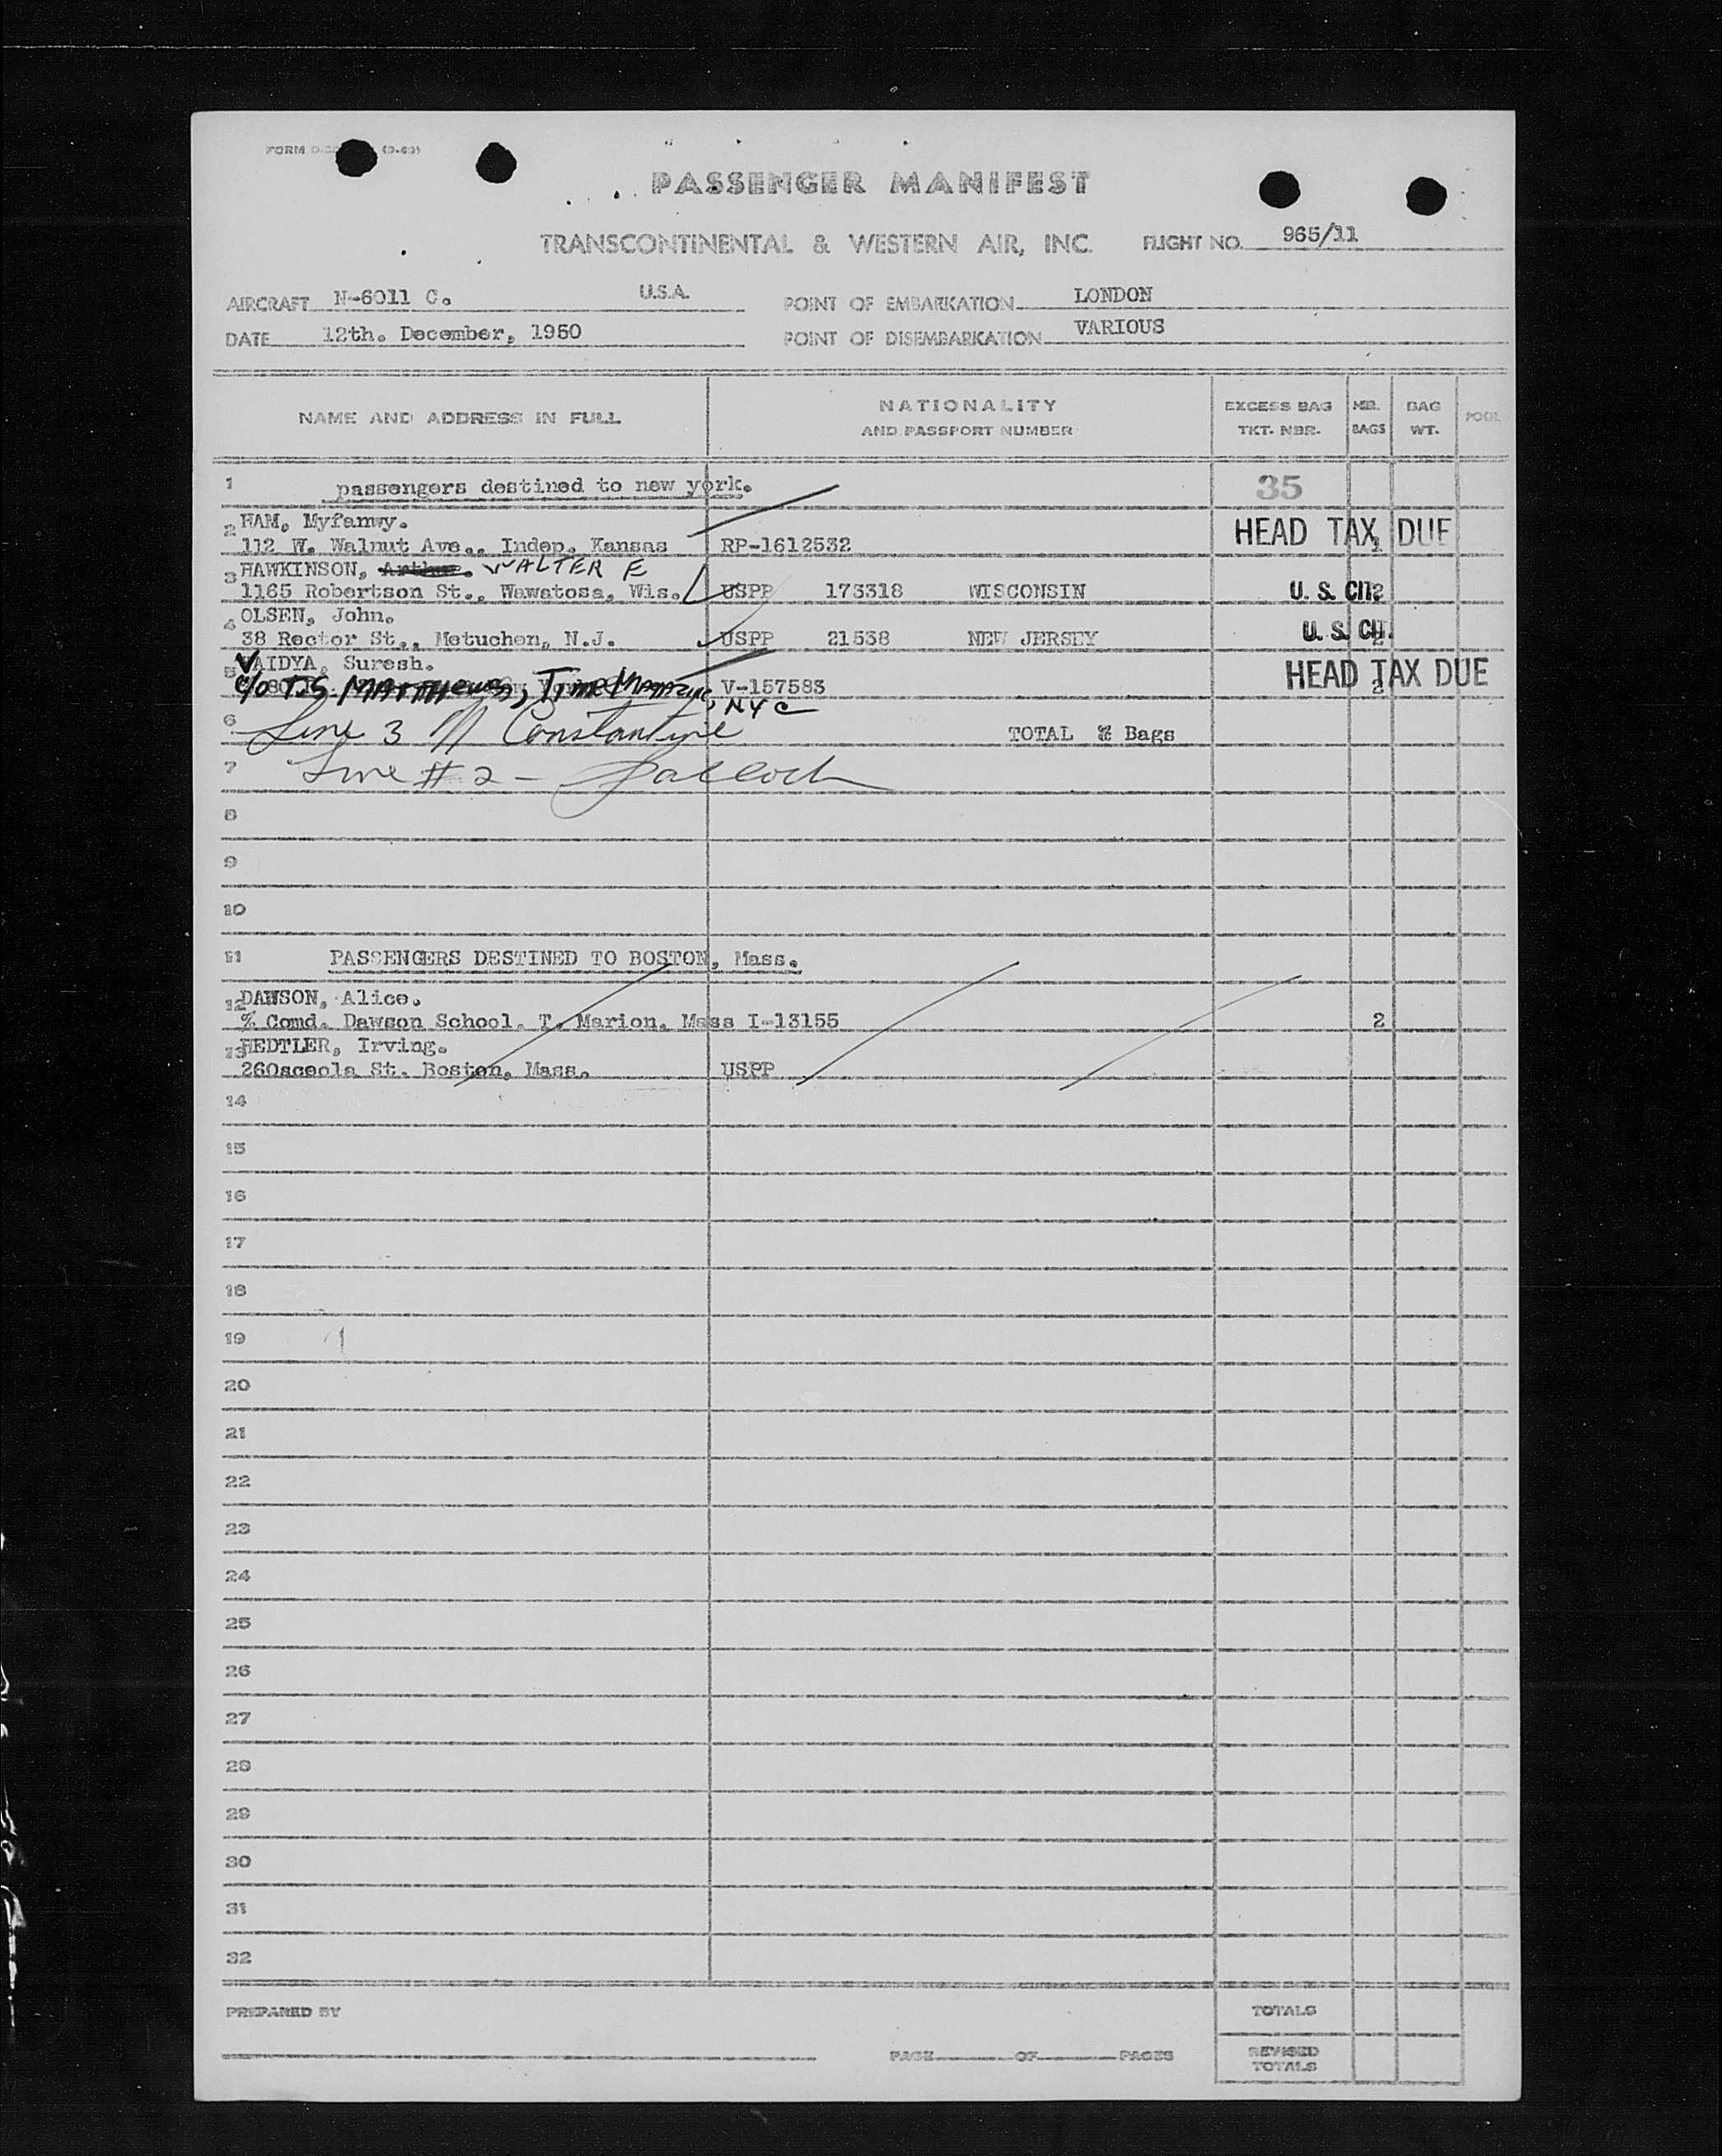 FORM (9-49)
PASSENGER MANIFEST
TRANSCONTINENTAL & WESTERN AIR, INC. FLIGHT NO. 965/11
AIRCRAFT N-6011 C. U.S.A. POINT OF EMBARKATION LONDON
DATE 12th. December, 1950 POINT OF DISEMBARKATION VARIOUS
NAME AND ADDRESS IN FULL NATIONALITY AND PASSPORT NUMBER EXCESS BAG TKT. NBR. NBR. BAGS BAG WT. POOL
1 passengers destined to new york. 35
2 HAM, Myfanwy. HEAD TAX DUE
112 W. Walnut Ave., Indep. Kansas RP-1612532 1
3 HAWKINSON, Arthur. WALTER E
1165 Robertson St., Wawatosa, Wis. USPP 173318 WISCONSIN U. S. CIT. 2
4 OLSEN, John.
38 Rector St., Metuchen, N.J. USPP 21538 NEW JERSEY U. S. CIT.
5 VAIDYA, Suresh. HEAD TAX DUE
c/o T.S. MATTHEWS, TIME MAGAZINE, NYC V-157583 2
6 Line 3 M Constantine TOTAL Bags
7 Line # 2 -
8
9
10
11 PASSENGERS DESTINED TO BOSTON, Mass.
12 DAWSON, Alice.
% Comd. Dawson School. T. Marion. Mass I-13155 2
13 HEDTLER, Irving.
26Osceola St. Boston, Mass. USPP
14
15
16
17
18
19
20
21
22
23
24
25
26
27
28
29
30
31
32
PREPARED BY TOTALS
PAGE OF PAGES REVISED TOTALS